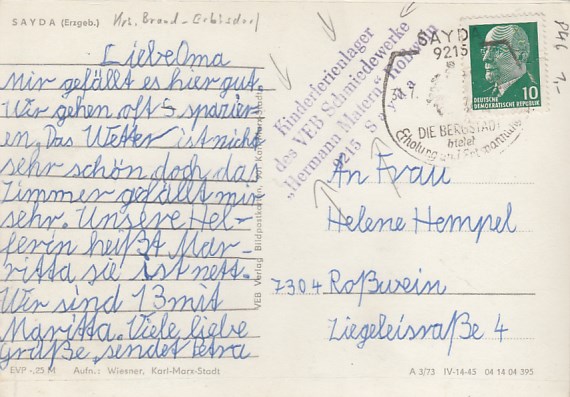 SAYDA (Erzgeb.) Krs. Brand-Erbisdorf
Liebe Oma
Mir gefällt es hier gut
Wir gehen oft S spazier
en. Das Wetter ist nicht
sehr schön doch das
Zimmer gefällt mir
sehr. Unsere Hel-
ferin heißt Mar-
ritta sie ist nett.
Wir sind 13 mit
Maritta. Viele liebe
Grüße, sendet Petra
EVP -,25 M Aufn.: Wiesner, Karl-Marx-Stadt
VEB Verlag Bildpostkarten, 901 Karl-Marx-Stadt
Kinderferienlager
des VEB Schmiedewerke
„Hermann Matern“ Roßwein
9215 S
SAYDA
9215
DIE BERGSTADT
bietet
Erholung und Entspannung
10
DEUTSCHE
DEMOKRATISCHE REPUBLIK
1,-
An Frau
Helene Hempel
7304 Roßwein
Ziegeleisraße 4
A 3/73 IV-14-45 04 14 04 395